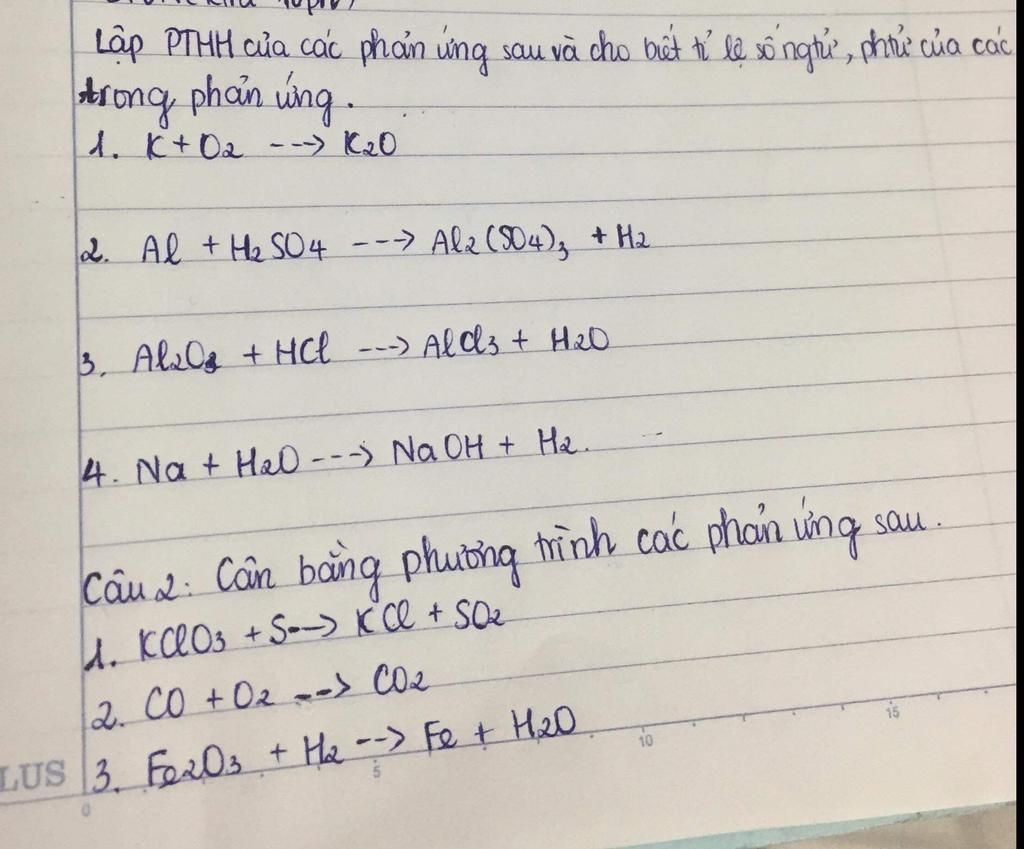 Lập PTHH của các phản ứng sau và cho biết tỉ lệ số ngtử, phtử của các
trong phản ứng.
1. K + O2 ---> K2O
2. Al + H2SO4 ---> Al2(SO4)3 + H2
3. Al2O3 + HCl ---> AlCl3 + H2O
4. Na + H2O ---> NaOH + H2.
Câu 2: Cân bằng phương trình các phản ứng sau.
1. KClO3 + S --> KCl + SO2
2. CO + O2 --> CO2
3. Fe2O3 + H2 --> Fe + H2O
LUS
0 5 10 15